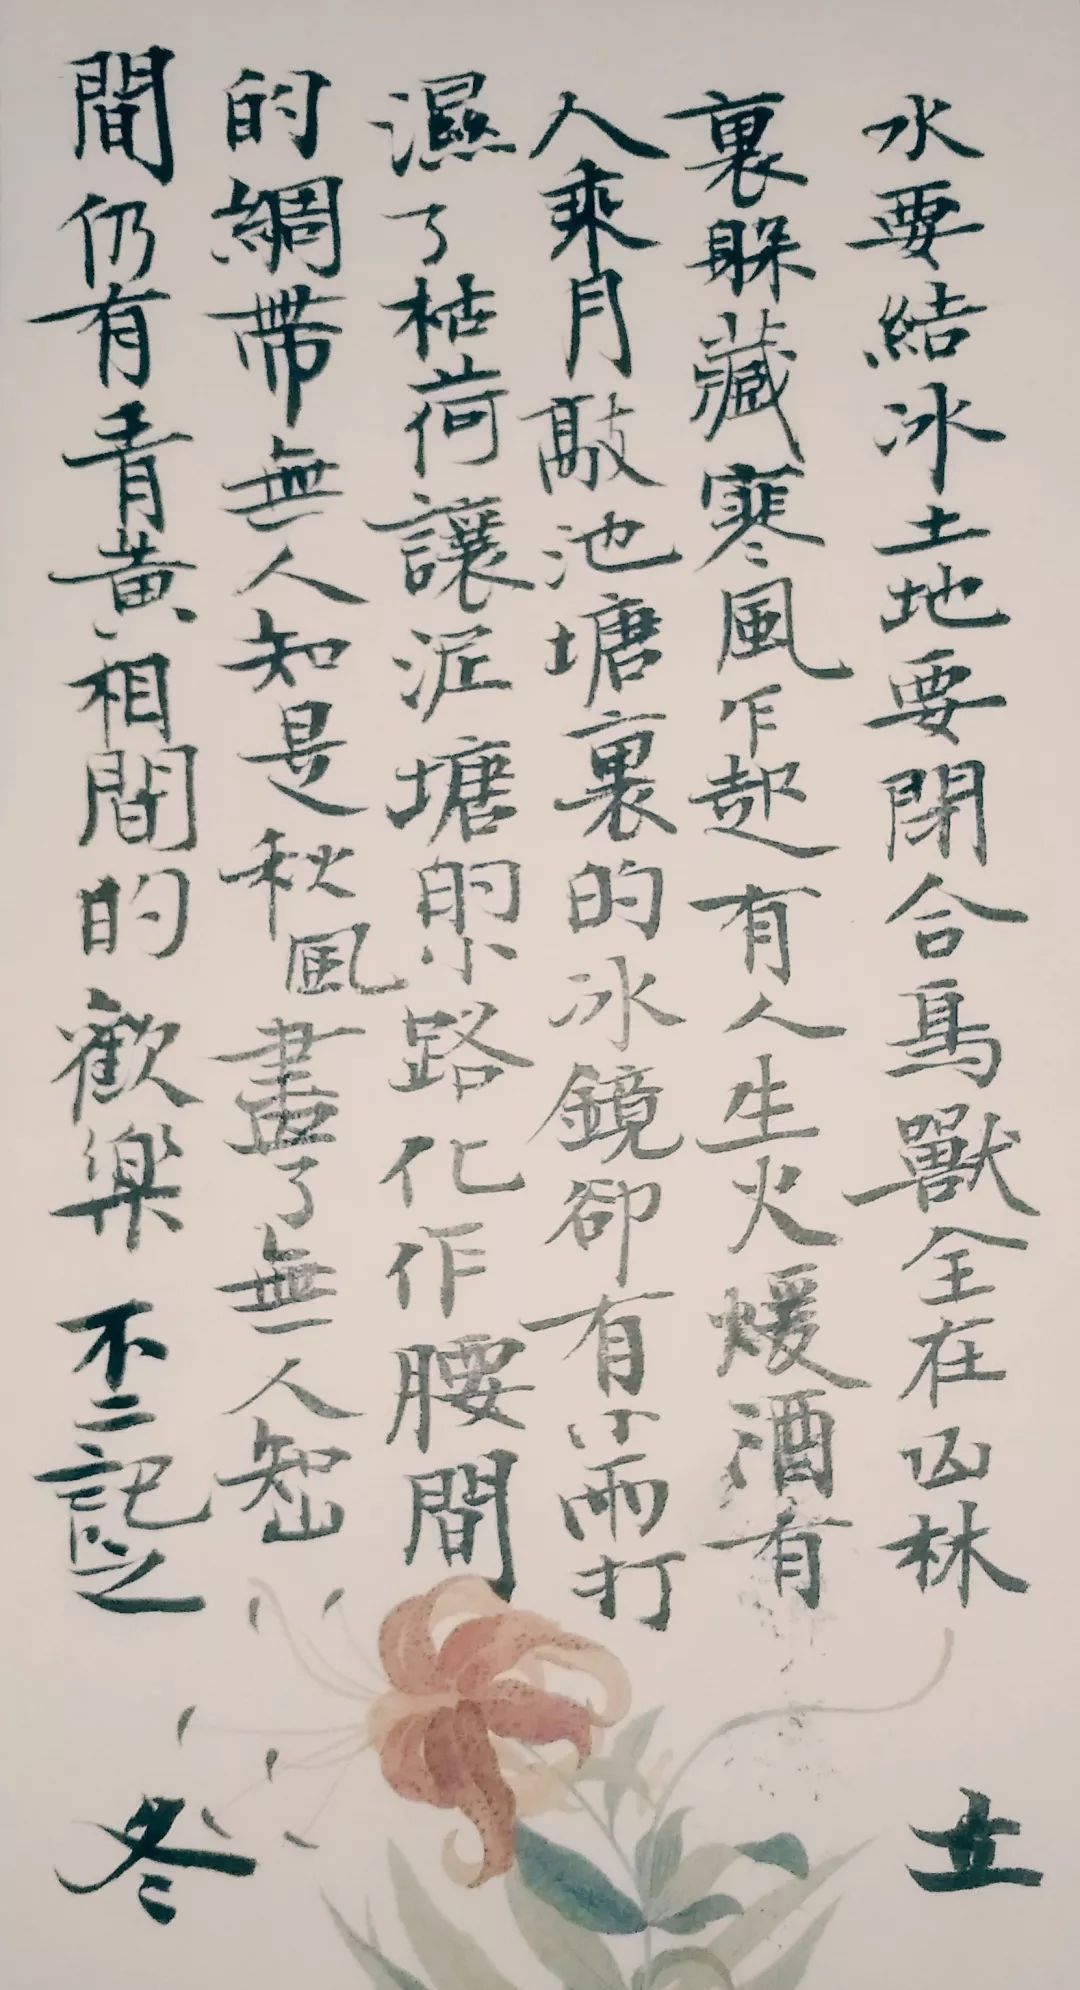 水要結冰土地要閉合鳥獸全在山林
裏躲藏寒風乍起有人生火煖酒有
人乘月敲池塘裏的冰鏡卻有小雨打
濕了枯荷讓泥塘的小路化作腰間
的綢帶無人知是秋風盡了無人知山
間仍有青黃相間的歡樂 不二記之
立冬